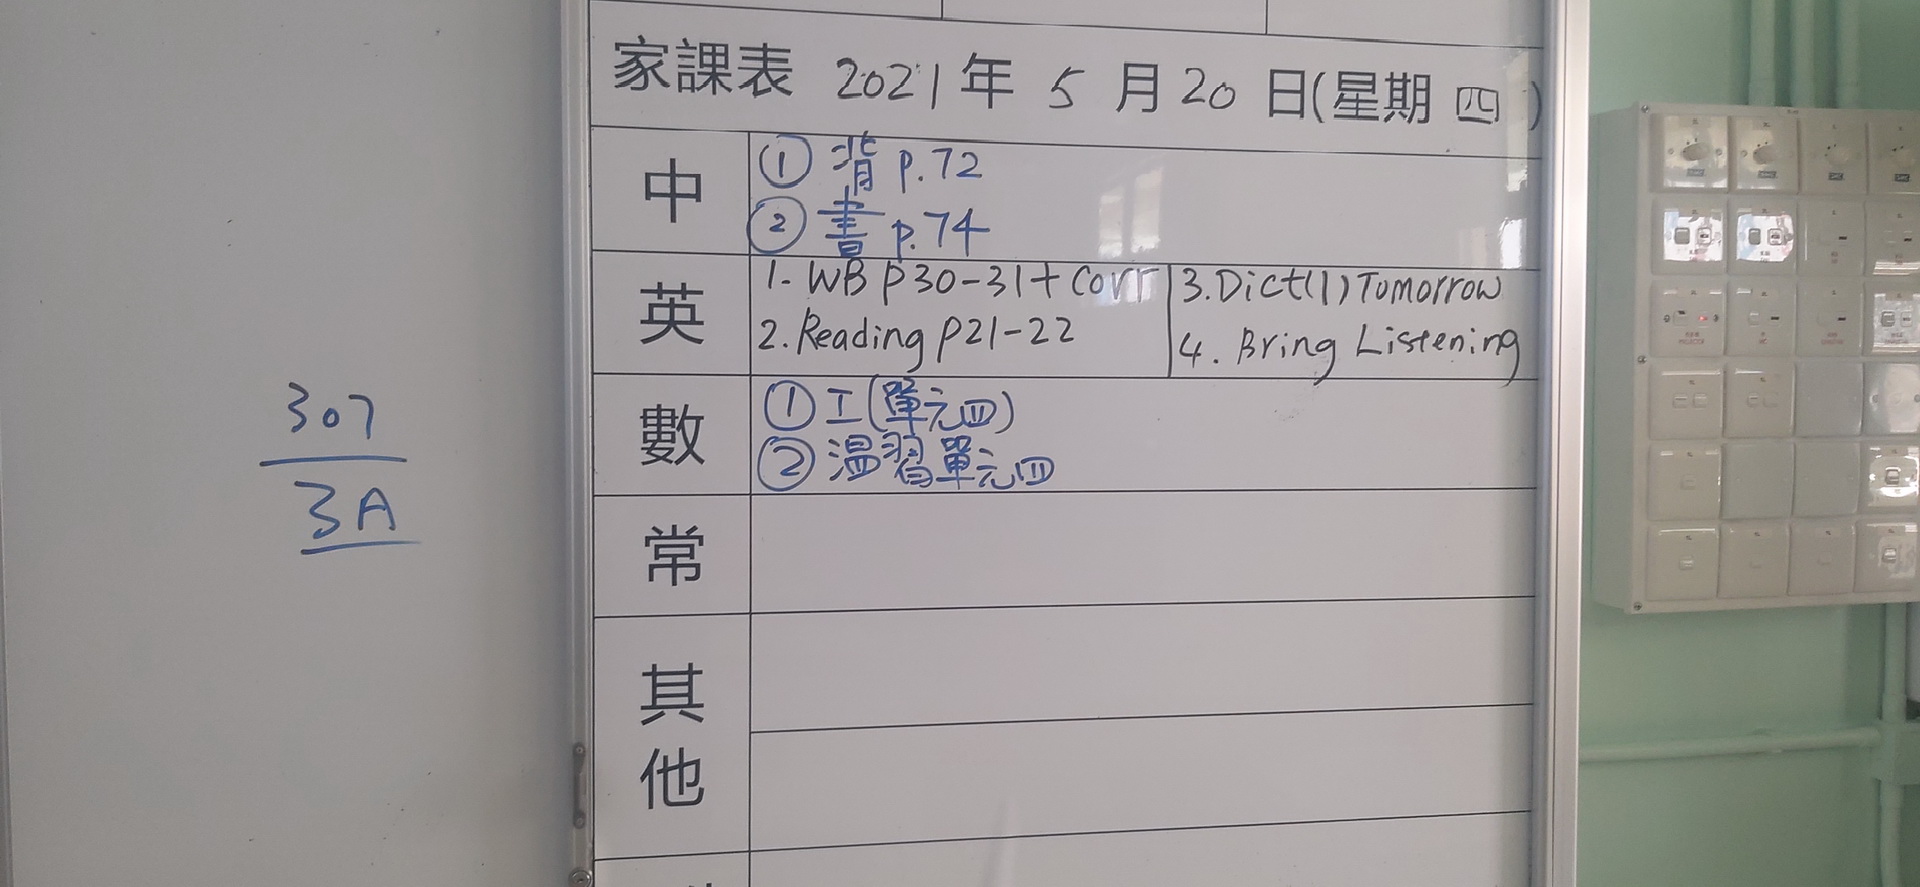 307
3A
家課表 2021年 5月20日(星期四)
中
① 背 p.72
② 書 p.74
英
1. WB P30-31+Corr
2. Reading P21-22
3. Dict(1) Tomorrow
4. Bring Listening
數
① 工(單元四)
② 溫習單元四
常
其他